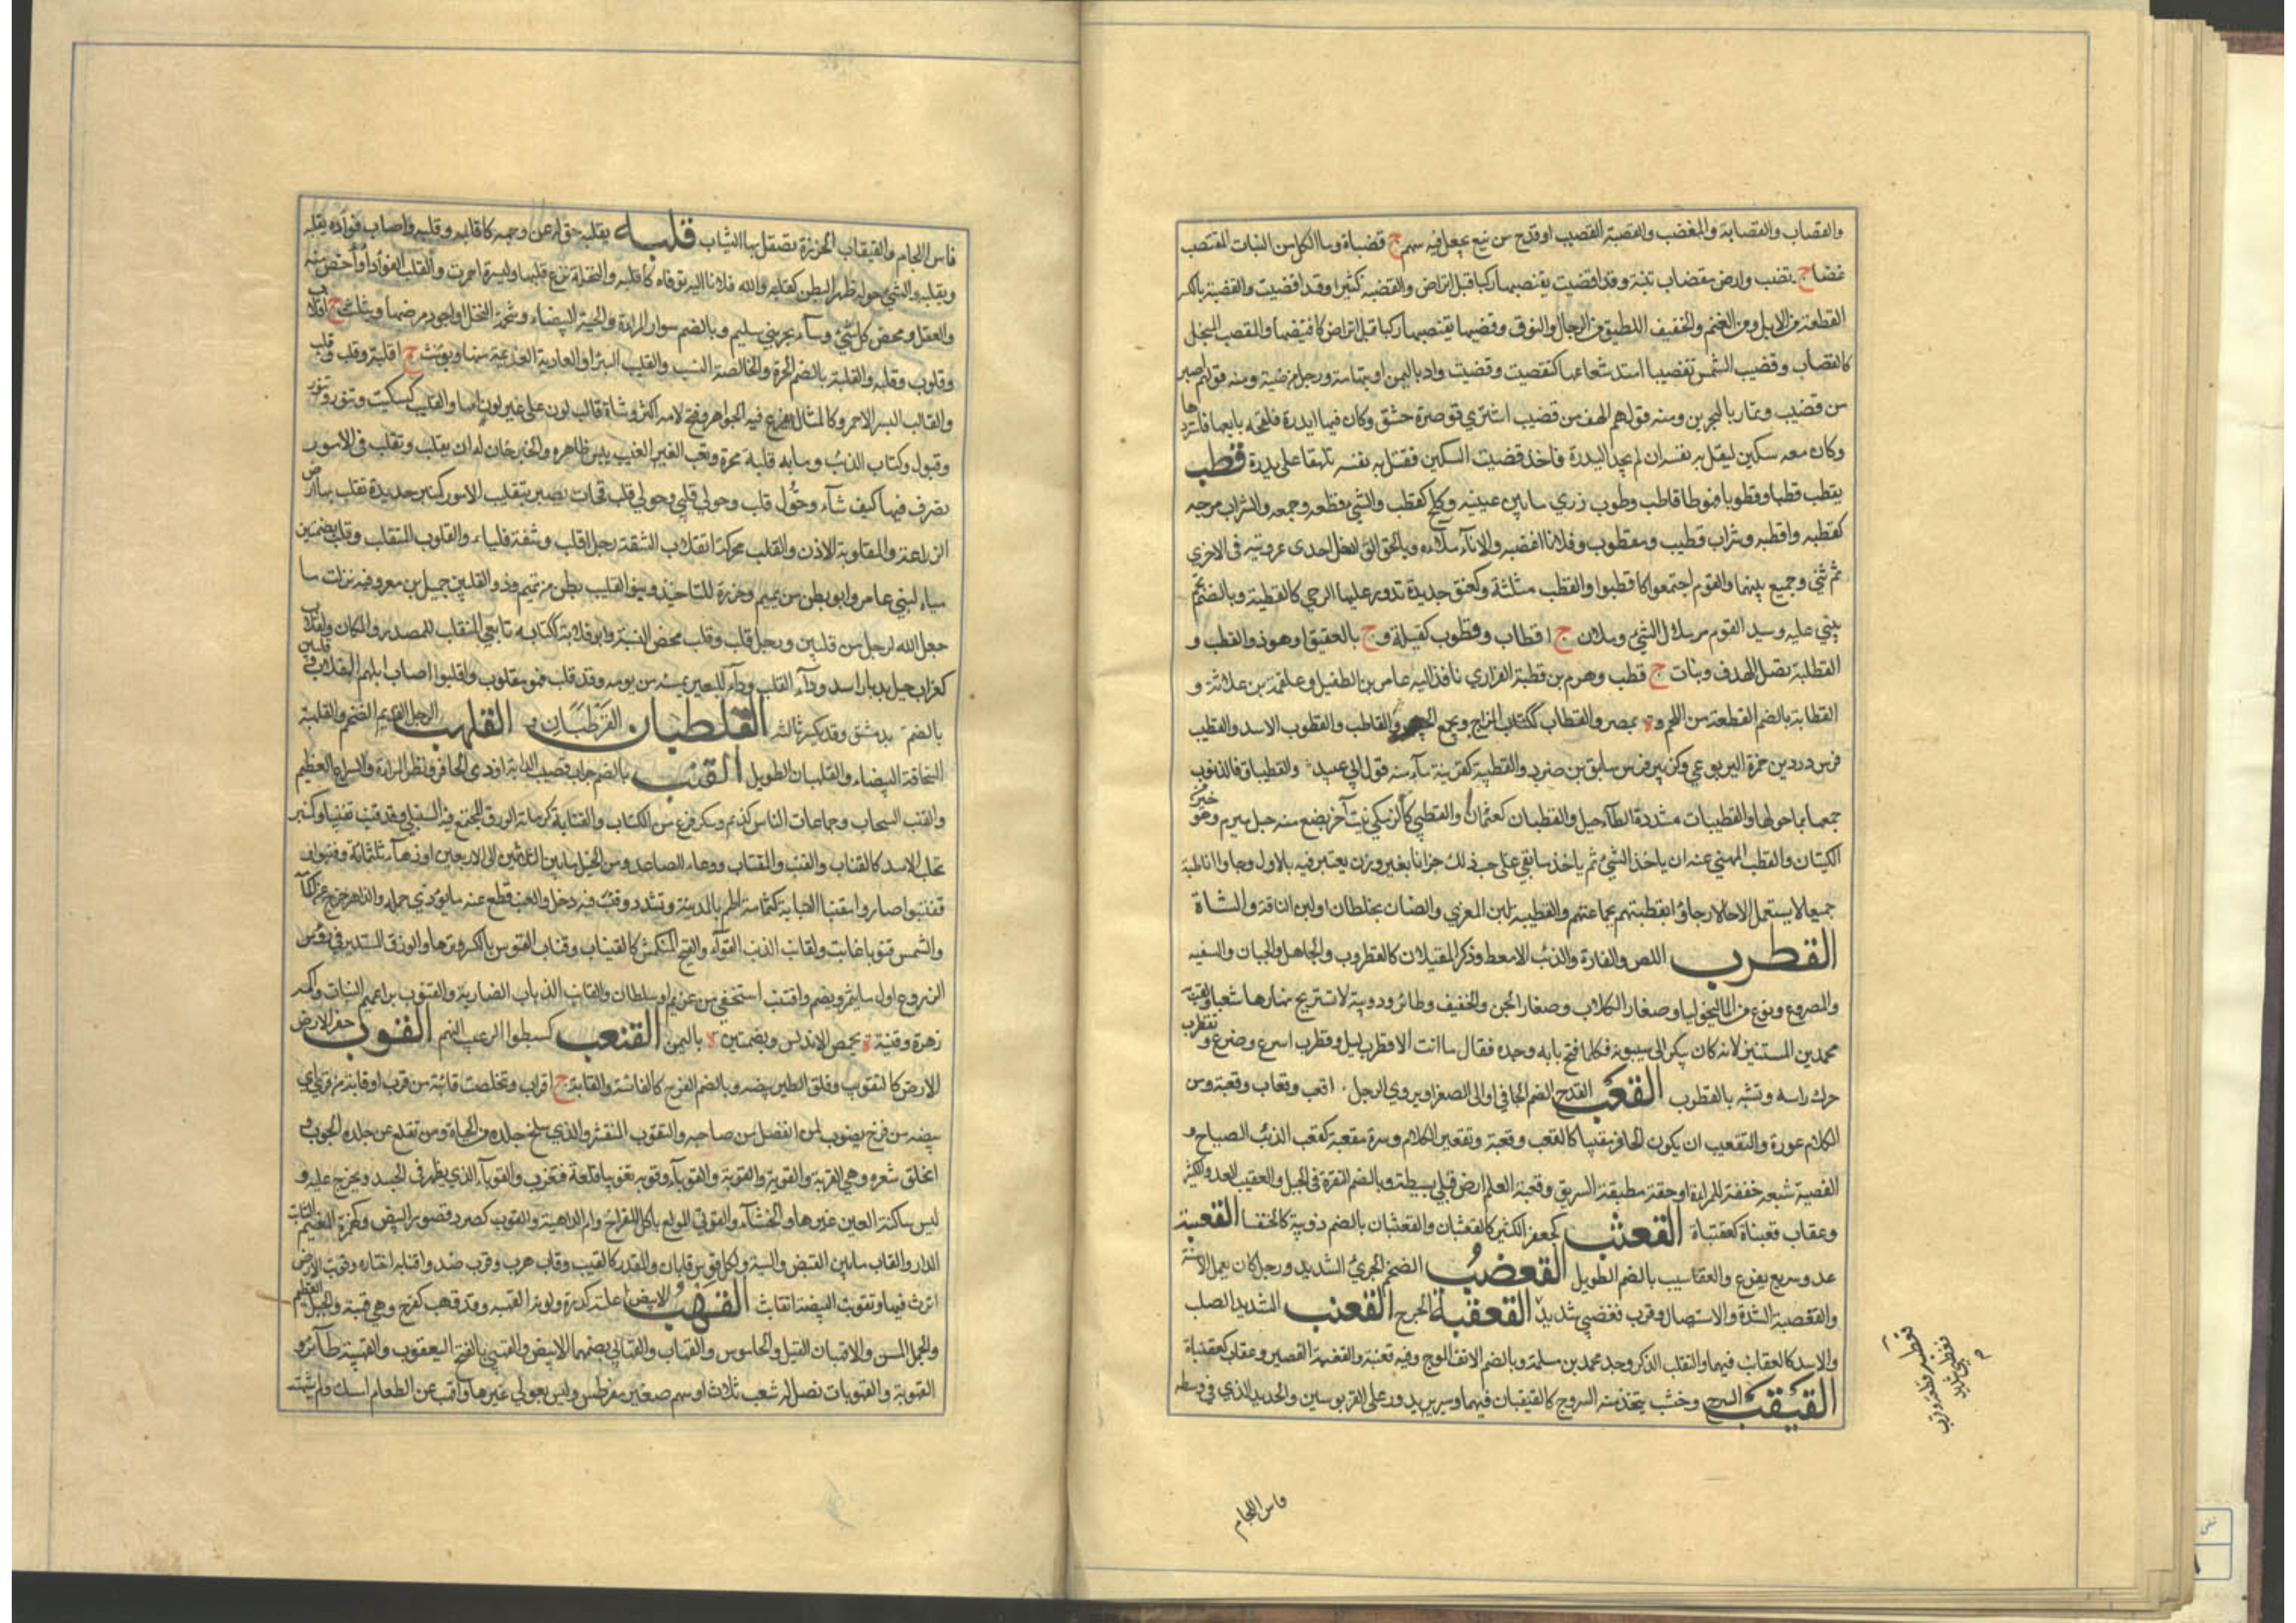 والقضاب والقضابة والمقضب والقضبة القضيب او قدح من نبع يجعل فيه سهم ج قضباة وما اكل من النبات المقتضب
غضا ج يقضب وارض مقضاب تنبته وقد اقضبت يقتضبها ركبا قبل ان تراض والقضبة كثيرا وقد اقضبت والقضبة بالكسر
القطعة من الابل ومن الغنم والخفيف اللطيف من الرجال والنوق وقضبها يقتضبها ركبا قبل ان تراض كاقتضبها والمقضب المنجل
كالمقضاب وقضبت الشمس تقضيبا امتد شعاعها كتقضبت وقضيب واد باليمن او بتهامة ورجل من ضبة ومنه قولهم اصبر
من قضيب وتمار بالبحرين ومنه قولهم الهف من قضيب اشترى قوصرة حشف وكان فيها بدرة فلحقه بايعها فاستردها
وكان معه سكين ليقتل به نفسه ان لم يجد البدرة فاخذ قضيب السكين فقتل به نفسه تلهفا على البدرة قطب
يقطب قطبا وقطوبا فهو قاطب وقطوب زوى ما بين عينيه وكلح كقطب والشيء قطعه وجمعه والشراب مزجه
كقطبه واقطبه وشراب قطيب ومقطوب وفلانا اغضبه والاناء ملاه وبالجوالق ادخل احدى عروتيه في الاخرى
ثم ثنى وجمع بينهما والقوم اجتمعوا كاقطبوا والقطب مثلثة وكعنق حديدة تدور عليها الرحى كالقطبة وبالضم نجم
يبنى عليه وسيد القوم وملاك الشيء ج اقطاب وقطوب كفيلة و ج بالعقيق او هو ذو القطب و
القطبة نصل الهدف ونبات ج قطب وهرم بن قطبة الفزاري نافر اليه عامر بن الطفيل وعلقمة بن علاثة و
القطابة بالضم القطعة من اللحم و ة بمصر والقطاب ككتاب المزاج ومجمع الجيب والقاطب والقطوب الاسد والقطيب
فرس صرد بن حمزة اليربوعي وكزبير فرس سابق بن صرد والقطبية كعرنية ماء ومنه قول عبيد فالقطبيات فالذنوب
جمعها بما حولها والقطيبات مشددة الطاء جبل والقطبان كعثمان والقطبى كالزمكى نبت آخر يصنع منه حبل مبرم وهو خير من
الكتان والقطب المنهي عنه ان ياخذ الشيء ثم ياخذ ما بقي على حسب ذلك جزافا بغير وزن يعتبر فيه بالاول وجاوا قاطبة
جميعا لا يستعمل الا حالا وجاؤا بقطيبتهم بجماعتهم والقطيبة لبن المعزى والضان يخلطان او لبن الناقة والشاة
القطرب اللص والفارة والذئب الامعط وذكر الغيلان كالقطروب والجاهل والجبان والسفيه
والمصروع ونوع من الماليخوليا وصغار الكلاب وصغار الجن والخفيف وطائر ودويبة لا تستريح نهارها سعيا ولقب
محمد بن المستنير لانه كان يبكر الى سيبويه فكلما فتح بابه وجده فقال ما انت الا قطرب ليل وقطرب اسرع وصرع وتقطرب
حرك راسه وتشبه بالقطرب القعب القدح الضخم الجافي او الى الصغر او يروي الرجل اقعب وقعاب وقعبة ومن
الكلام غوره والتقعيب ان يكون الحافر مقببا كالقعب وقعبة وتقعير الكلام وسرة مقعبة كقعب الذئب الصياح و
القعبة شبه حقة للمراة او حقة مطبقة للسويق وقعبة العلم ارض قبلي بسيطة وبالضم النقرة في الجبل والقعيب العدد الكثير
وعقاب قعبناة كعقنباة القعثب كجعفر الكثير كالقعثبان والقعثبان بالضم دويبة كالخنفسا القعسبة
عدو سريع بفزع والقعاسب بالضم الطويل القعضب الضخم الجريء الشديد ورجل كان يعمل الاسنة
والقعضبة الشدة والاستيصال وقرب قعضبي شديد القعقبة الجرح القعنب الشديد الصلب
والاسد كالقعانب فيهما والثعلب الذكر وجد محمد بن مسلمة وبالضم الانف المعوج وفيه قعنبة والقعنبة القصير وعقاب كعقنباة
القيقب السرج وخشب يتخذ منه السروج كالقيقبان فيهما وسير يدور على القربوسين والحديد الذي في وسطه
فاس اللجام
فاس اللجام والقيقاب الخرزة تصقل بها الثياب قلبه يقلبه حوله عن وجهه كاقلبه وقلبه واصاب فؤاده يقلبه
ويقلبه والشيء حوله ظهرا لبطن كقلبه والله فلانا اليه توفاه كاقلبه والنخلة نزع قلبها والبسرة احمرت والقلب الفؤاد او اخص منه
والعقل ومحض كل شيء وماء بحرة بني سليم وبالضم سوار المراة والحية البيضاء وشحمة النخل او اجود خوصها ويثلث ج اقلاب
وقلوب وقلبة والقلبة بالضم الحمرة والخالصة النسب والقليب البئر او العادية القديمة منها ويؤنث ج اقلبة وقلب وقلب
والقالب البسر الاحمر وكالمثال يفرغ فيه الجواهر وفتح لامه اكثر وشاة قالب لون على غير لون امها والقليب كسكيت وتنور وسنور
وقبول وكتاب الذئب وما به قلبة محركة وتعب القلب العنب يبس ظاهره والخبز حان له ان يقلب وتقلب في الامور
تصرف فيها كيف شاء وحول قلب وحولي قلبي وحولي قلب محتال بصير بتقليب الامور وكمنبر حديدة تقلب بها ارض
الزراعة والمقلوبة الاذن والقلب محركة انقلاب الشفة رجل اقلب وشفة قلباء والقلوب المتقلب وقلب بضمتين
مياه لبني عامر وابو بطن من تميم وخرزة للتاخيذ وبنو القليب بطن من تميم وذو القلبين جميل بن معمر وفيه نزلت ما
جعل الله لرجل من قلبين ورجل قلب وقلب محض النسب وابو قلابة ككتابة تابعي والمنقلب للمصدر والمكان والقلاب
كغراب جبل بديار اسد وداء القلب وداء للبعير يميته من يومه وقد قلب فهو مقلوب واقلبوا اصاب ابلهم القلاب وقلبين
بالضم ة بدمشق وقد يكسر ثالثه القلطبان القرطبان و القلهب الرجل القديم الضخم والقلهبة
السحابة البيضاء والقلهبان الطويل القنب بالضم جراب قضيب الدابة او ذي الحافر وبظر المراة والشراع العظيم
والقنب السحاب وجماعات الناس كدنم وسكر نوع من الكتاب والقنابة كرمانة الورق المجتمع فيه السنبل وقد قنب تقنيبا وكمنبر
مخلب الاسد كالقناب والقنب والمقناب ووعاء الصائد ومن الخيل ما بين الثلاثين الى الاربعين او زهاء ثلثمائة وقنبوا
قنبوا صاروا مقنبا القنابة كثمامة اطم بالمدينة وتشدد وقنب فيه دخل والعنب قطع عنه ما يؤذي حمله والزهر خرج عن اكمامه
والشمس قنوبا غابت والقانب الذئب العواء والفيج المنكمش كالقيناب وقناب القوس بالكسر وترها والورق المستدير في رؤس
الزروع اول ما يثمر ويضم واقنب استخفى من غريم او سلطان والقانب الذئاب الضارية والقنوب براعيم النبات واكمة
زهره وقنبة ة بحمص الاندلس وبضمتين ة باليمن القنعب كسبطر الرغيب النهم القوب حفر الارض
الارض كالتقوب وفلق الطير بيضه وبالضم الفرخ كالقائبة والقابة ج اقواب وتخلصت قائبة من قوب او قابة من قوب اي
بيضة من فرخ يضرب لمن انفصل من صاحبه والمتقوب المتقشر والذي سلخ جلده من الحيات ومن تقلع عن جلده الجرب و
انحلق شعره وهي القوبة والقوبة والقوباء والقوباء وقوبه تقويبا قلعه فتقوب والقوباء الذي يظهر في الجسد ويخرج عليه و
ليس ساكنة العين غيرها والخشاء والقوبي المولع باكل الفراخ وام قوب الداهية والقوب كصرد قشور البيض وكهمزة المقيم الثابت
الدار والقاب ما بين المقبض والسية ولكل قوس قابان والمقدار كالقيب وقاب هرب وقرب ضد واقتابه اختاره وقوبت الارض
اثرت فيها وتقوبت البيضة انقابت القهب الابيض علته كدرة ولونه القهبة وقد قهب كفرح وهي قهبة والجبل العظيم
والجمل المسن والاقهبان الفيل والجاموس والقهاب والقهابي بضمهما الابيض والقهبي بالفتح اليعقوب والقهيبة طائر و
القهوبة والقهوبات نصل له شعب ثلاث او سهم صغير مقرطس وليس فعولى غيرها واقهب عن الطعام امسك ولم يشته